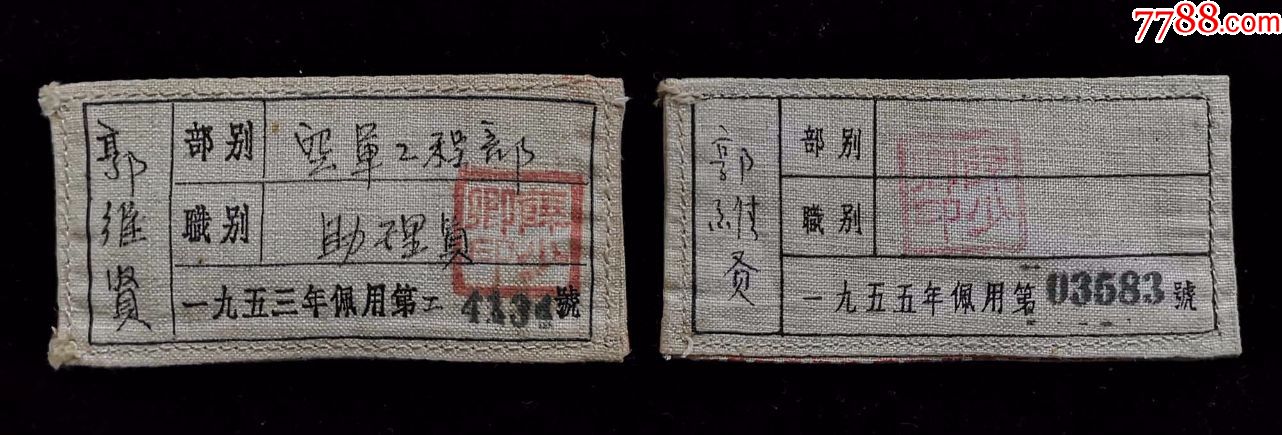 7788.com
郭維賢
部别 空軍工程部
職别 助理員
一九五三年佩用第工4334號
薛少卿印
郭维贤
部别
職别
一九五五年佩用第03583號
薛少卿印